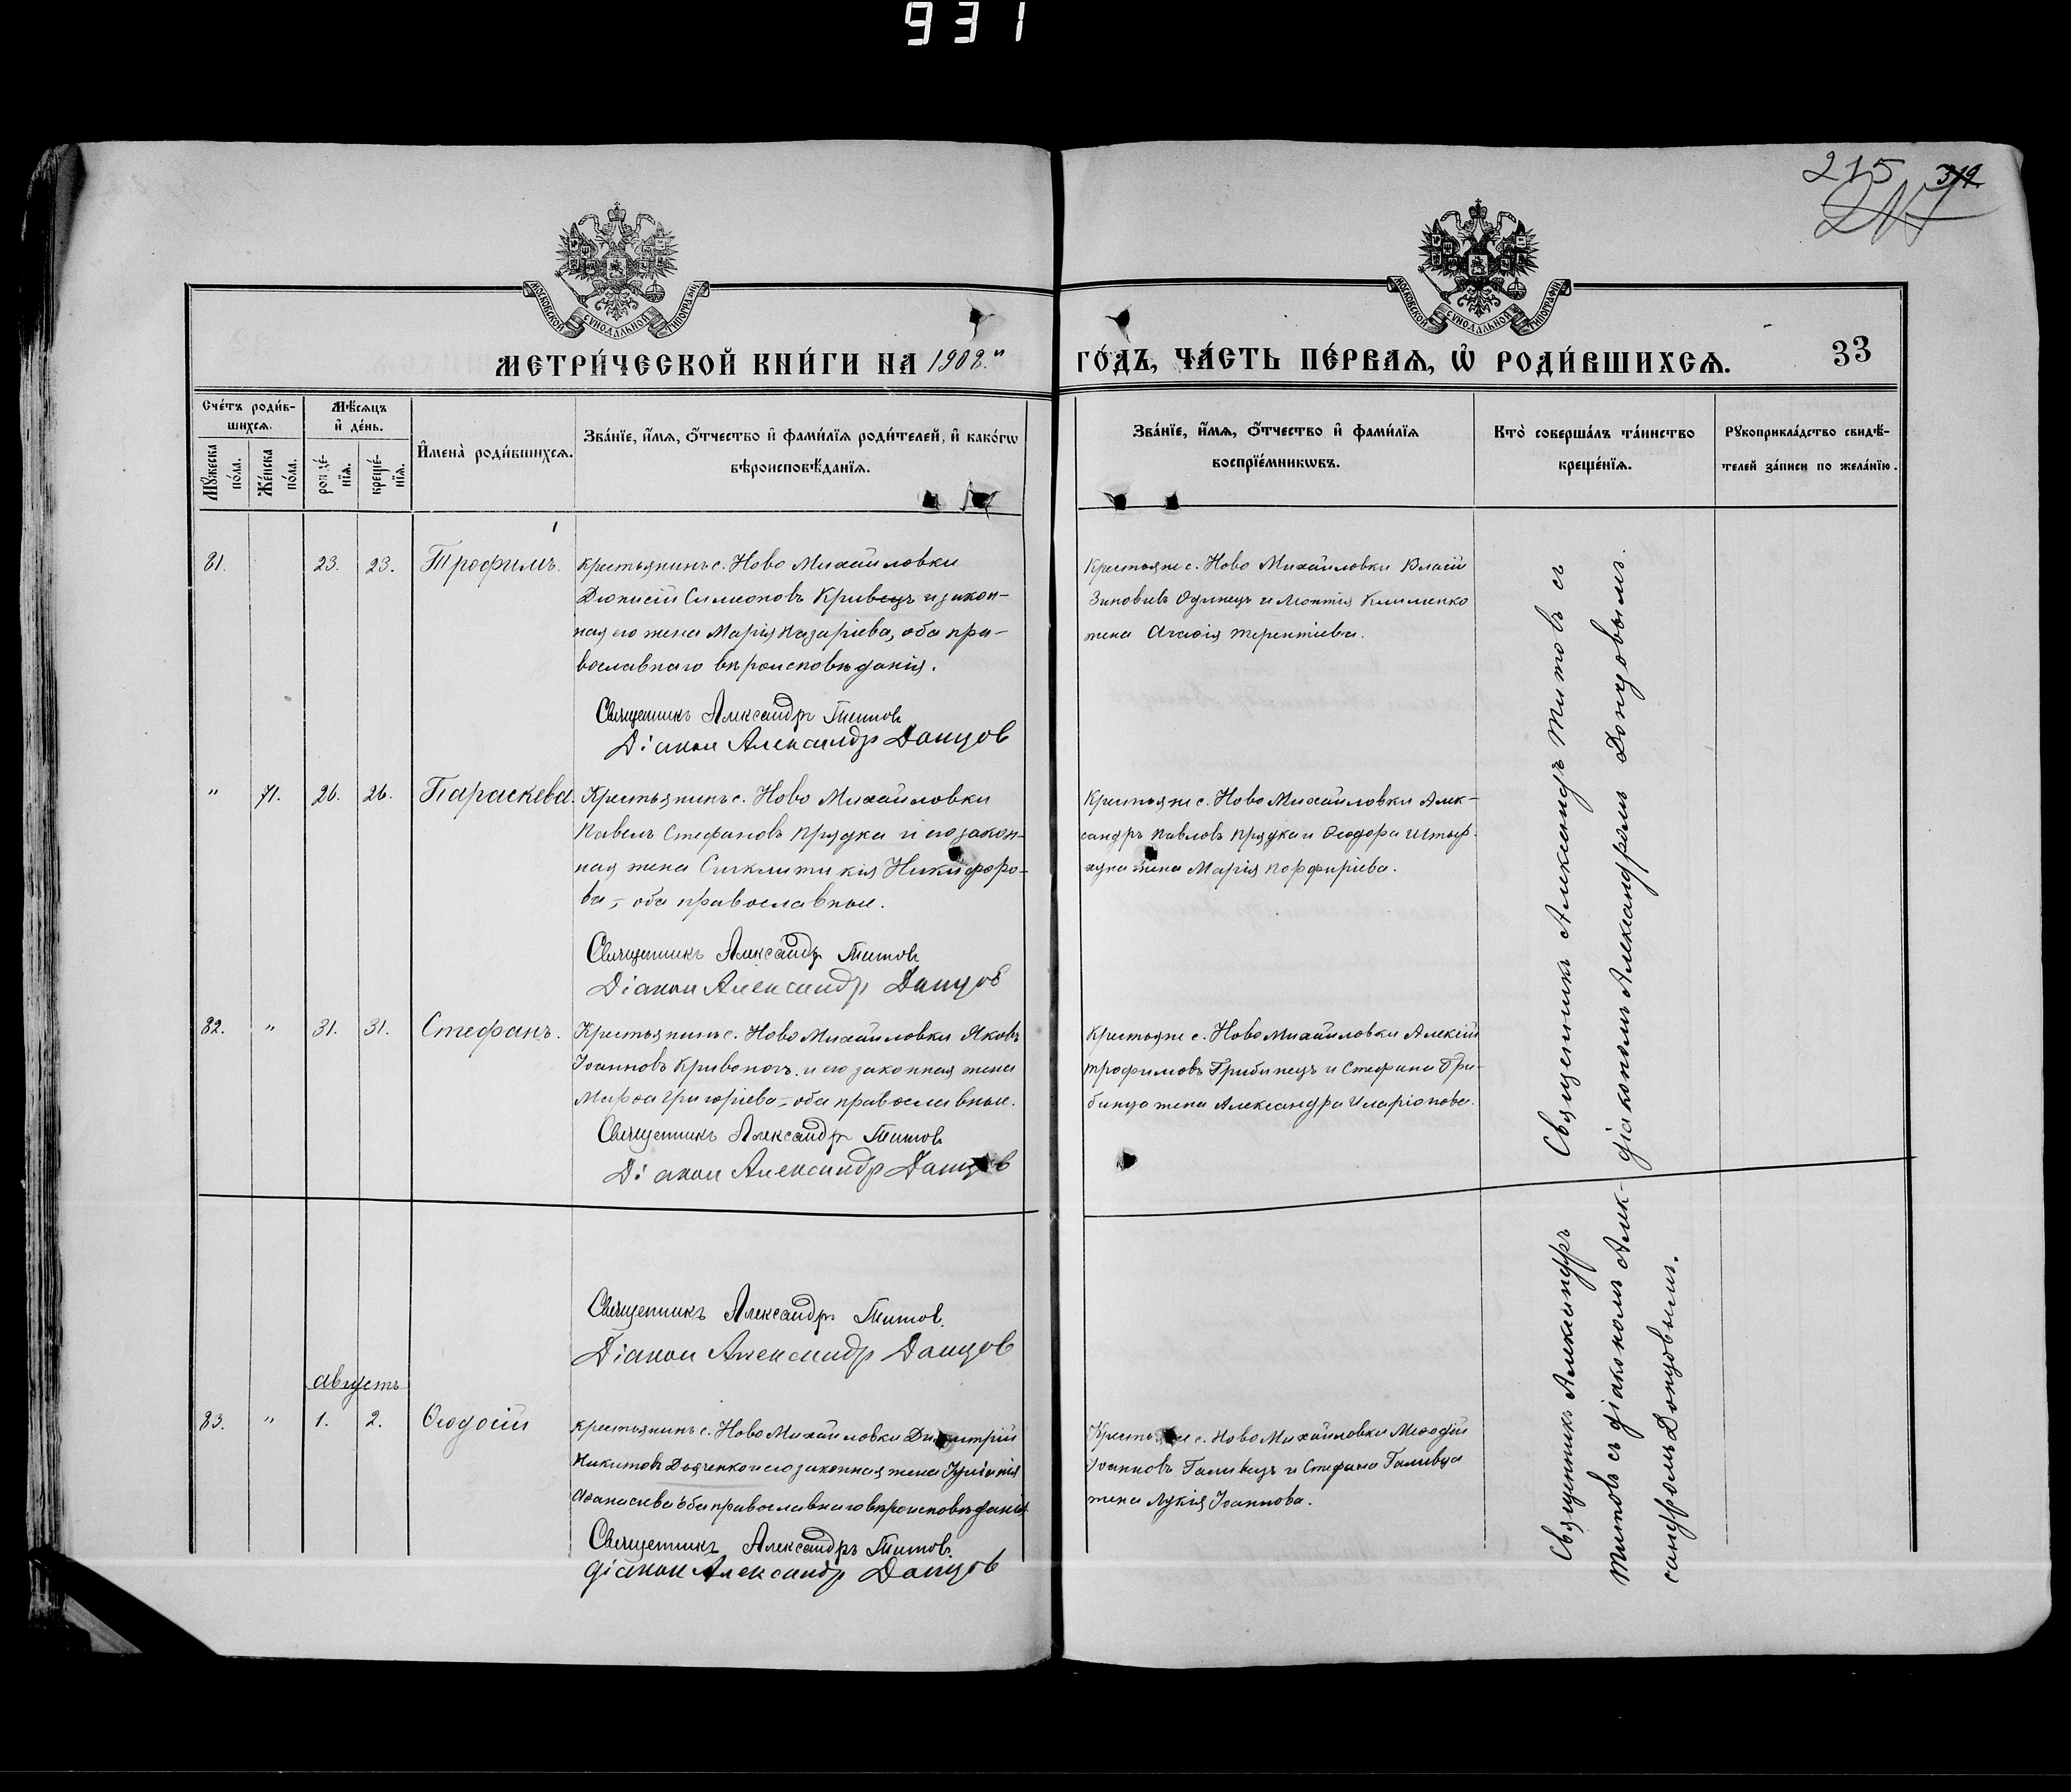 931
215 319
217
МОСКОВСКОЙ СУНОДАЛЬНОЙ ТИПОГРАФІИ
МОСКОВСКОЙ СУНОДАЛЬНОЙ ТИПОГРАФІИ
МЕТРИ́ЧЕСКОЙ КНИ́ГИ НА 1902.й ГО́ДЪ, ЧА́СТЬ ПЕ́РВАѦ, Ѡ РОДИ́ВШИХСѦ. 33
Сче́тъ роди́в-
шихсѧ.
Мꙋ́жеска по́ла.
Же́нска по́ла.
Мѣ́сѧцъ
и҆ де́нь.
рожде́-
нїѧ.
креще́-
нїѧ.
И҆мена̀ роди́вшихсѧ.
Зва́нїе, и҆́мѧ, ѻ҆́тчество и҆ фами́лїѧ роди́телей, и҆ како́гѡ
вѣроисповѣ́данїѧ.
Зва́нїе, и҆́мѧ, ѻ҆́тчество и҆ фами́лїѧ
воспрїе́мникѡвъ.
Кто̀ соверша́лъ та́инство
креще́нїѧ.
Рꙋкоприкла́дство свидѣ́-
телей за́писи по жела́нїю.
81. 23. 23. Трофимъ.
Крестьянинъ с. Ново Михайловки
Діонисій Симеоновъ Кривецъ и закон-
ная его жена Марія Назаріева, оба пра-
вославнаго вѣроисповѣданія.
Священникъ Александръ Титовъ
Діакон Александр Данцов
Крестьяне с. Ново Михайловки Власій
Зиновіевъ Одинецъ и Леонтія Клименко
жена Агафія Терентіева.
" 71. 26. 26. Параскева.
Крестьянинъ с. Ново Михайловки
Павелъ Стефановъ Прядка и его закон-
ная жена Синклитикія Никифоро-
ва, - оба православные.
Священникъ Александръ Титовъ
Діакон Александр Данцов
Крестьяне с. Ново Михайловки Алек-
сандръ Павловъ Прядка и Ѳеодора
жена Марія Порфиріева.
82. " 31. 31. Стефанъ.
Крестьянинъ с. Ново Михайловки Яковъ
Іоанновъ Кривоногъ и его законная жена
Марѳа Григоріева - оба православные.
Священникъ Александръ Титовъ
Діакон Александр Данцов
Крестьяне с. Ново Михайловки Алексій
Трофимовъ Грибинецъ и Стефана Гри-
бинца жена Александра Иларіонова.
Священникъ Александръ Титовъ съ
діакономъ Александромъ Донцовымъ.
Священникъ Александръ Титов.
Діакон Александр Данцов
Августъ
83. " 1. 2. Ѳеодосій
Крестьянинъ с. Ново Михайловки Димитрій
Никитовъ Дьяченко и его законная жена
Аѳанасіева оба православнаго вѣроисповѣданія.
Священникъ Александръ Титовъ.
діакон Александр Данцов
Крестьяне с. Ново Михайловки Меѳодій
Іоанновъ Галивецъ и Стефана Галивца
жена Лукія Іоаннова.
Священникъ Александръ
Титовъ съ діакономъ Алек-
сандромъ Донцовымъ.